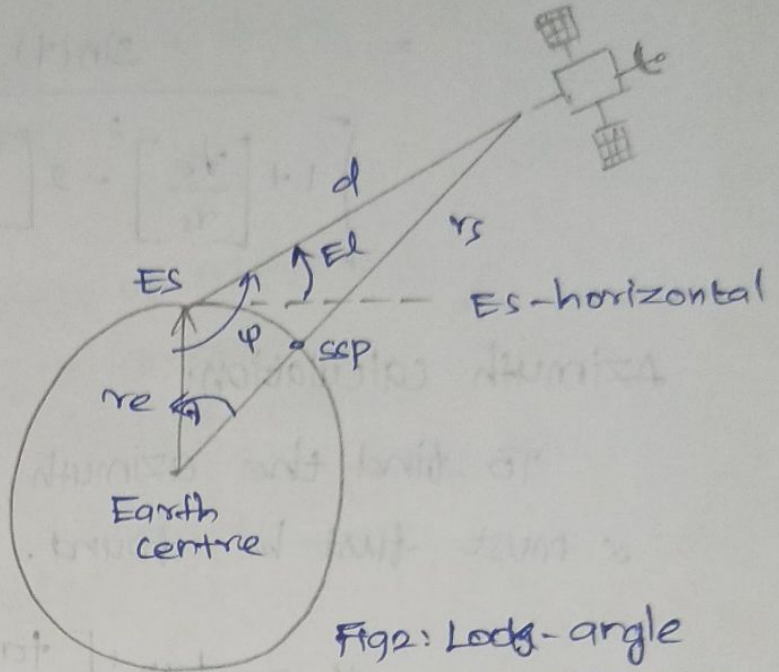 d
rs
El
ES
ES-horizontal
ψ
SSP
re
Earth
centre
Fig2: Look-angle